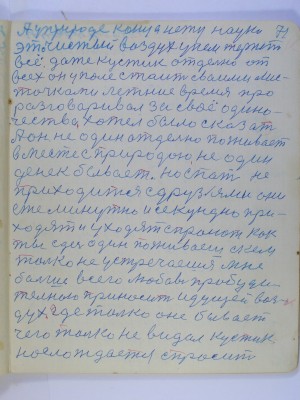 А у природе конца нету науки 71
это чистый воздух у нем
всё, даже кустик отдельно от
всех он у поле стоит своими лис-
точками летнее время про
разговаривал за своё одино-
чества, хотел было сказат
А он не один отделно поживает
вместе с природою, не один
денек бывает. Но спат не
приходится сдрузлями они
ежеминутно и секундно при-
ходят и уходят спросит как
ты сдес один поживаеш скем
толко не устречаешся мне
болше всего любов
приносит идущей воз-
дух, где толко оне бывает
чего толко не видал кустик
наслождается спросит